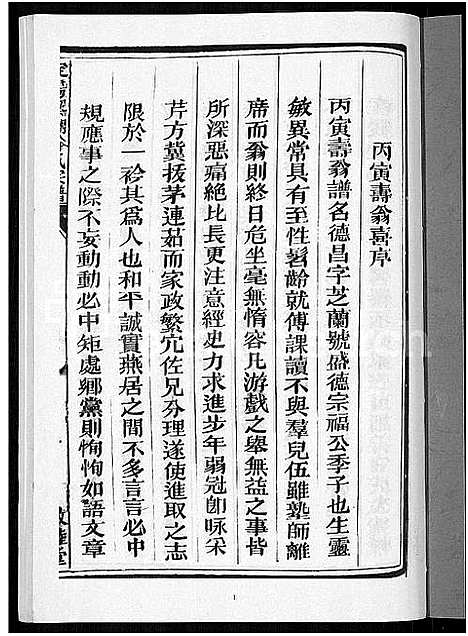 丙寅壽翁喜序
丙寅壽翁譜名德昌字芝蘭號盛德宗福公季子也生靈
敏異常具有至性髫齡就傅課讀不與羣兒伍雖塾師離
席而翁則終日危坐毫無惰容凡游戲之舉無益之事皆
所深惡痛絶比長更注意經史力求進步年弱冠卽咏采
芹方冀拔茅連茹而家政繁宂佐兄分理遂使進取之志
限於一衿其爲人也和平誠實燕居之間不多言言必中
規應事之際不妄動動必中矩處鄉黨則恂恂如語文章